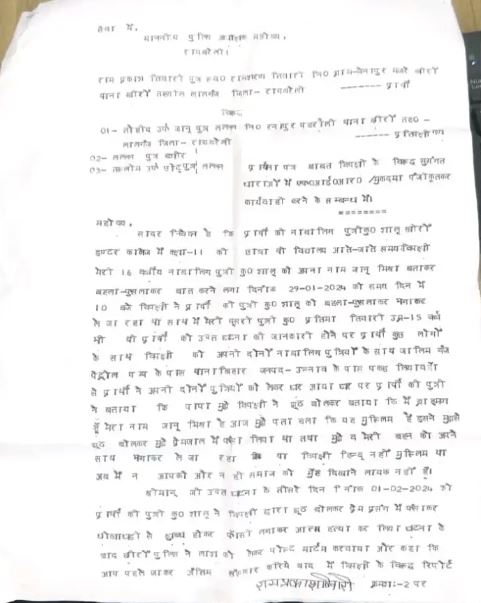 सेवा में,
माननीय पुलिस अधीक्षक महोदय,
रायबरेली।
राम प्रकाश तिवारी पुत्र स्व0 रामशरण तिवारी नि0 ग्राम- मजरे खीरों
थाना खीरों तहसील लालगंज जिला- रायबरेली ------- प्रार्थी
विरूद्ध
01- तौहीद उर्फ जानू पुत्र लल्लन नि0 रनापुर पहरौली थाना खीरों तह0-
लालगंज जिला- रायबरेली ------- प्रतिपक्षी गण
02- लल्लन पुत्र बशीर
03- तसलीम उर्फ छोटू पुत्र लल्लन
प्रार्थना पत्र बाबत विपक्षी के विरूद्ध सुसंगत
धाराओं में एफ0आई0आर0 /मुकदमा पंजीकृतकर
कार्यवाही करने के सम्बन्ध में।
महोदय,
सादर निवेदन है कि प्रार्थी की नाबालिग पुत्री कु0 शालू खीरों
इण्टर कालेज में कक्षा-11 की छात्रा थी विद्यालय आते-जाते समय विपक्षी
मेरी 16 वर्षीय नाबालिग पुत्री कु0 शालू को अपना नाम जानू मिश्रा बताकर
बहला-फुसलाकर बात करने लगा दिनांक 29-01-2024 को समय दिन में
10 बजे विपक्षी ने प्रार्थी की पुत्री कु0 शालू को बहला-फुसलाकर भगाकर
ले जा रहा था साथ में मेरी दूसरी पुत्री कु0 प्रतिमा तिवारी उम्र-15 वर्ष
थी प्रार्थी को उक्त घटना की जानकारी होने पर प्रार्थी कुछ लोगों
के साथ विपक्षी को अपनी दोनों नाबालिग पुत्रियों के साथ जालिम गंज
पेट्रोल पम्प के पास थाना बिहार जनपद- उन्नाव के पास पकड़ लिया वहाँ
से प्रार्थी ने अपनी दोनों पुत्रियों को लेकर घर आया घर पर प्रार्थी की पुत्री
ने बताया कि पापा मुझे विपक्षी ने झूठ बोलकर बताया कि मैं ब्राह्मण
हूँ मेरा नाम जानू मिश्रा है आज मुझे पता चला कि यह मुस्लिम है इसने मुझसे
झूठ बोलकर मुझे प्रेमजाल में फंसा लिया था तथा मुझे व मेरी बहन को अपने
साथ भगाकर ले जा रहा था विपक्षी हिन्दू नहीं मुस्लिम था
अब मैं न आपको और न ही समाज को मुँह दिखाने लायक नहीं हूँ।
श्रीमान् जी उक्त घटना के तीसरे दिन दिनांक 01-02-2024 को
प्रार्थी की पुत्री कु0 शालू ने विपक्षी द्वारा झूठ बोलकर प्रेम प्रसंग में फंसाकर
धोखाधड़ी से क्षुब्ध होकर फाँसी लगाकर आत्म हत्या कर लिया घटना के
बाद खीरों पुलिस ने लाश को लेकर पोस्ट मार्टम करवाया और कहा कि
आप पहले जाकर अंतिम संस्कार करिये बाद में विपक्षी के विरूद्ध रिपोर्ट
रामप्रकाश तिवारी क्रमश:-2 पर